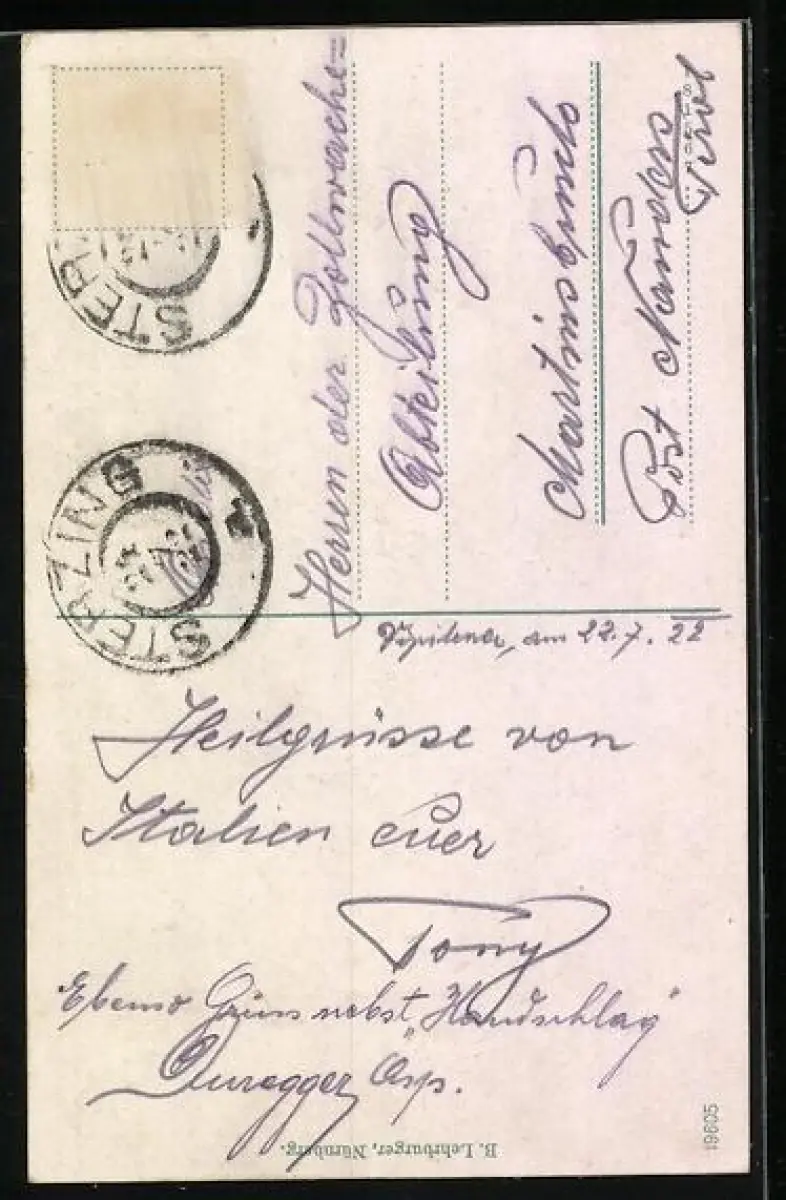 STERZING
STER
Herren der Zollwache-
Abteilung
Martinsbruck
Post Nauders
Tirol
am 22.7.22
Heilgrüsse von
Italien euer
Tony
Ebenso Gruss nebst "Handschlag"
B. Lehrburger, Nürnberg.
19605